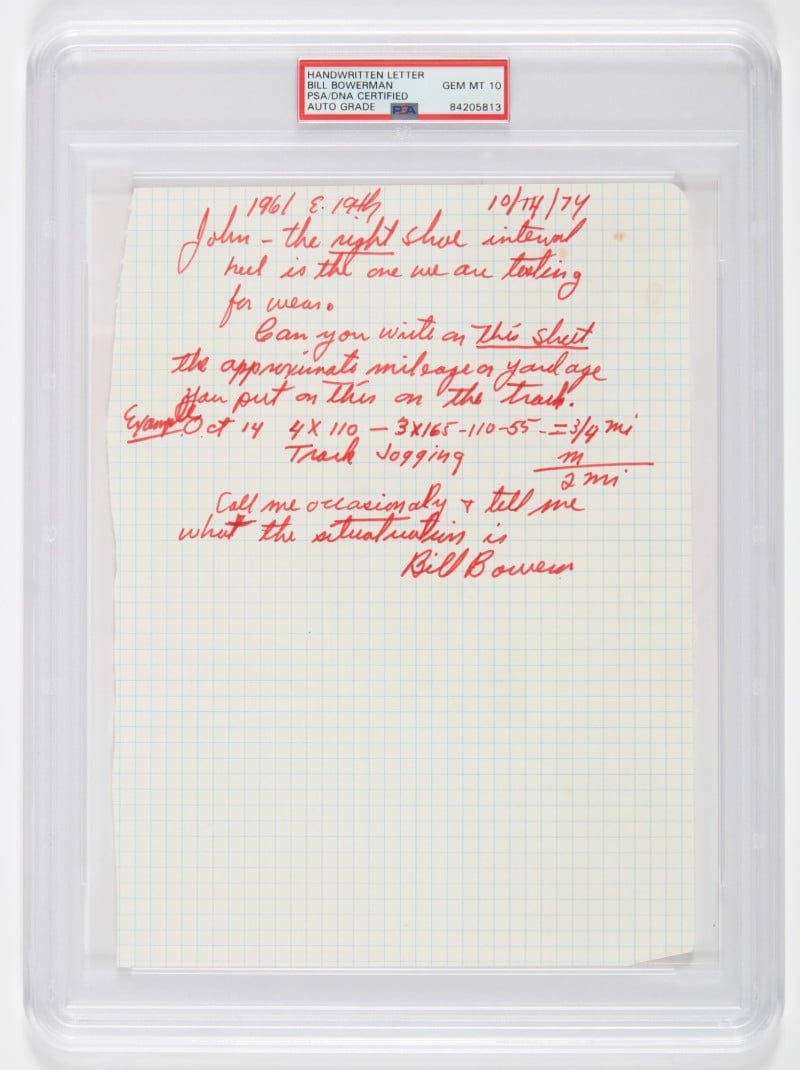 HANDWRITTEN LETTER
BILL BOWERMAN GEM MT 10
PSA/DNA CERTIFIED
AUTO GRADE PSA 84205813
1961 E. 19th 10/14/74
John - the right shoe internal
heel is the one we are testing
for wear.
Can you write on this sheet
the approximate mileage or yardage
you put on this on the track.
Example Oct 14 4 X 110 - 3 X 165 - 110 - 55 - = 3/4 mi
Track Jogging m
2 mi
Call me occasionaly + tell me
what the situatuation is
Bill Bowerm